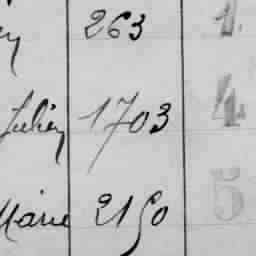 263 1.
Julien 1703 4.
Marie 2150 5